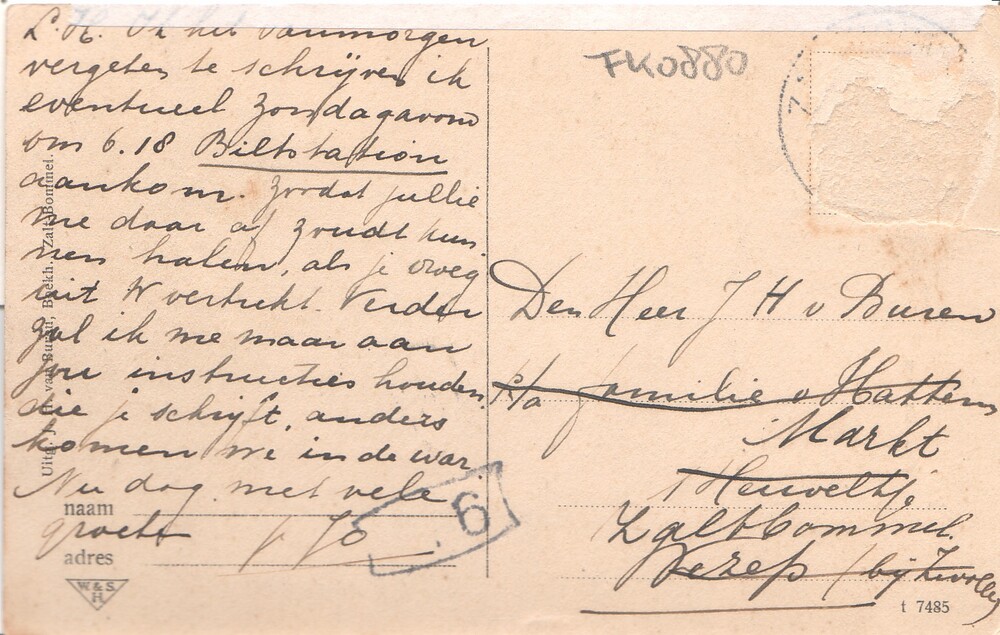 L.H. Ik heb vanmorgen
vergeten te schrijven ik
eventueel Zondagavond
om 6.18 Biltstation
aankom. Zoodat jullie
me daar af zoudt kun
nen halen, als je
uit W vertrekt. Verder
zal ik me maar aan
jou instructies houden
die je schrijft, anders
komen we in de war
Nu dag. met vele
groeten Jo
naam
adres
W & S.
H.
Uitg. J. H. van Buren, Boekh. Zalt-Bommel.
FK0880
7
6
Den Heer J H v Buren
p/a familie v Hattem
Markt
't Heuveltje
Zaltbommel
Wezep (bij Zwolle)
t 7485